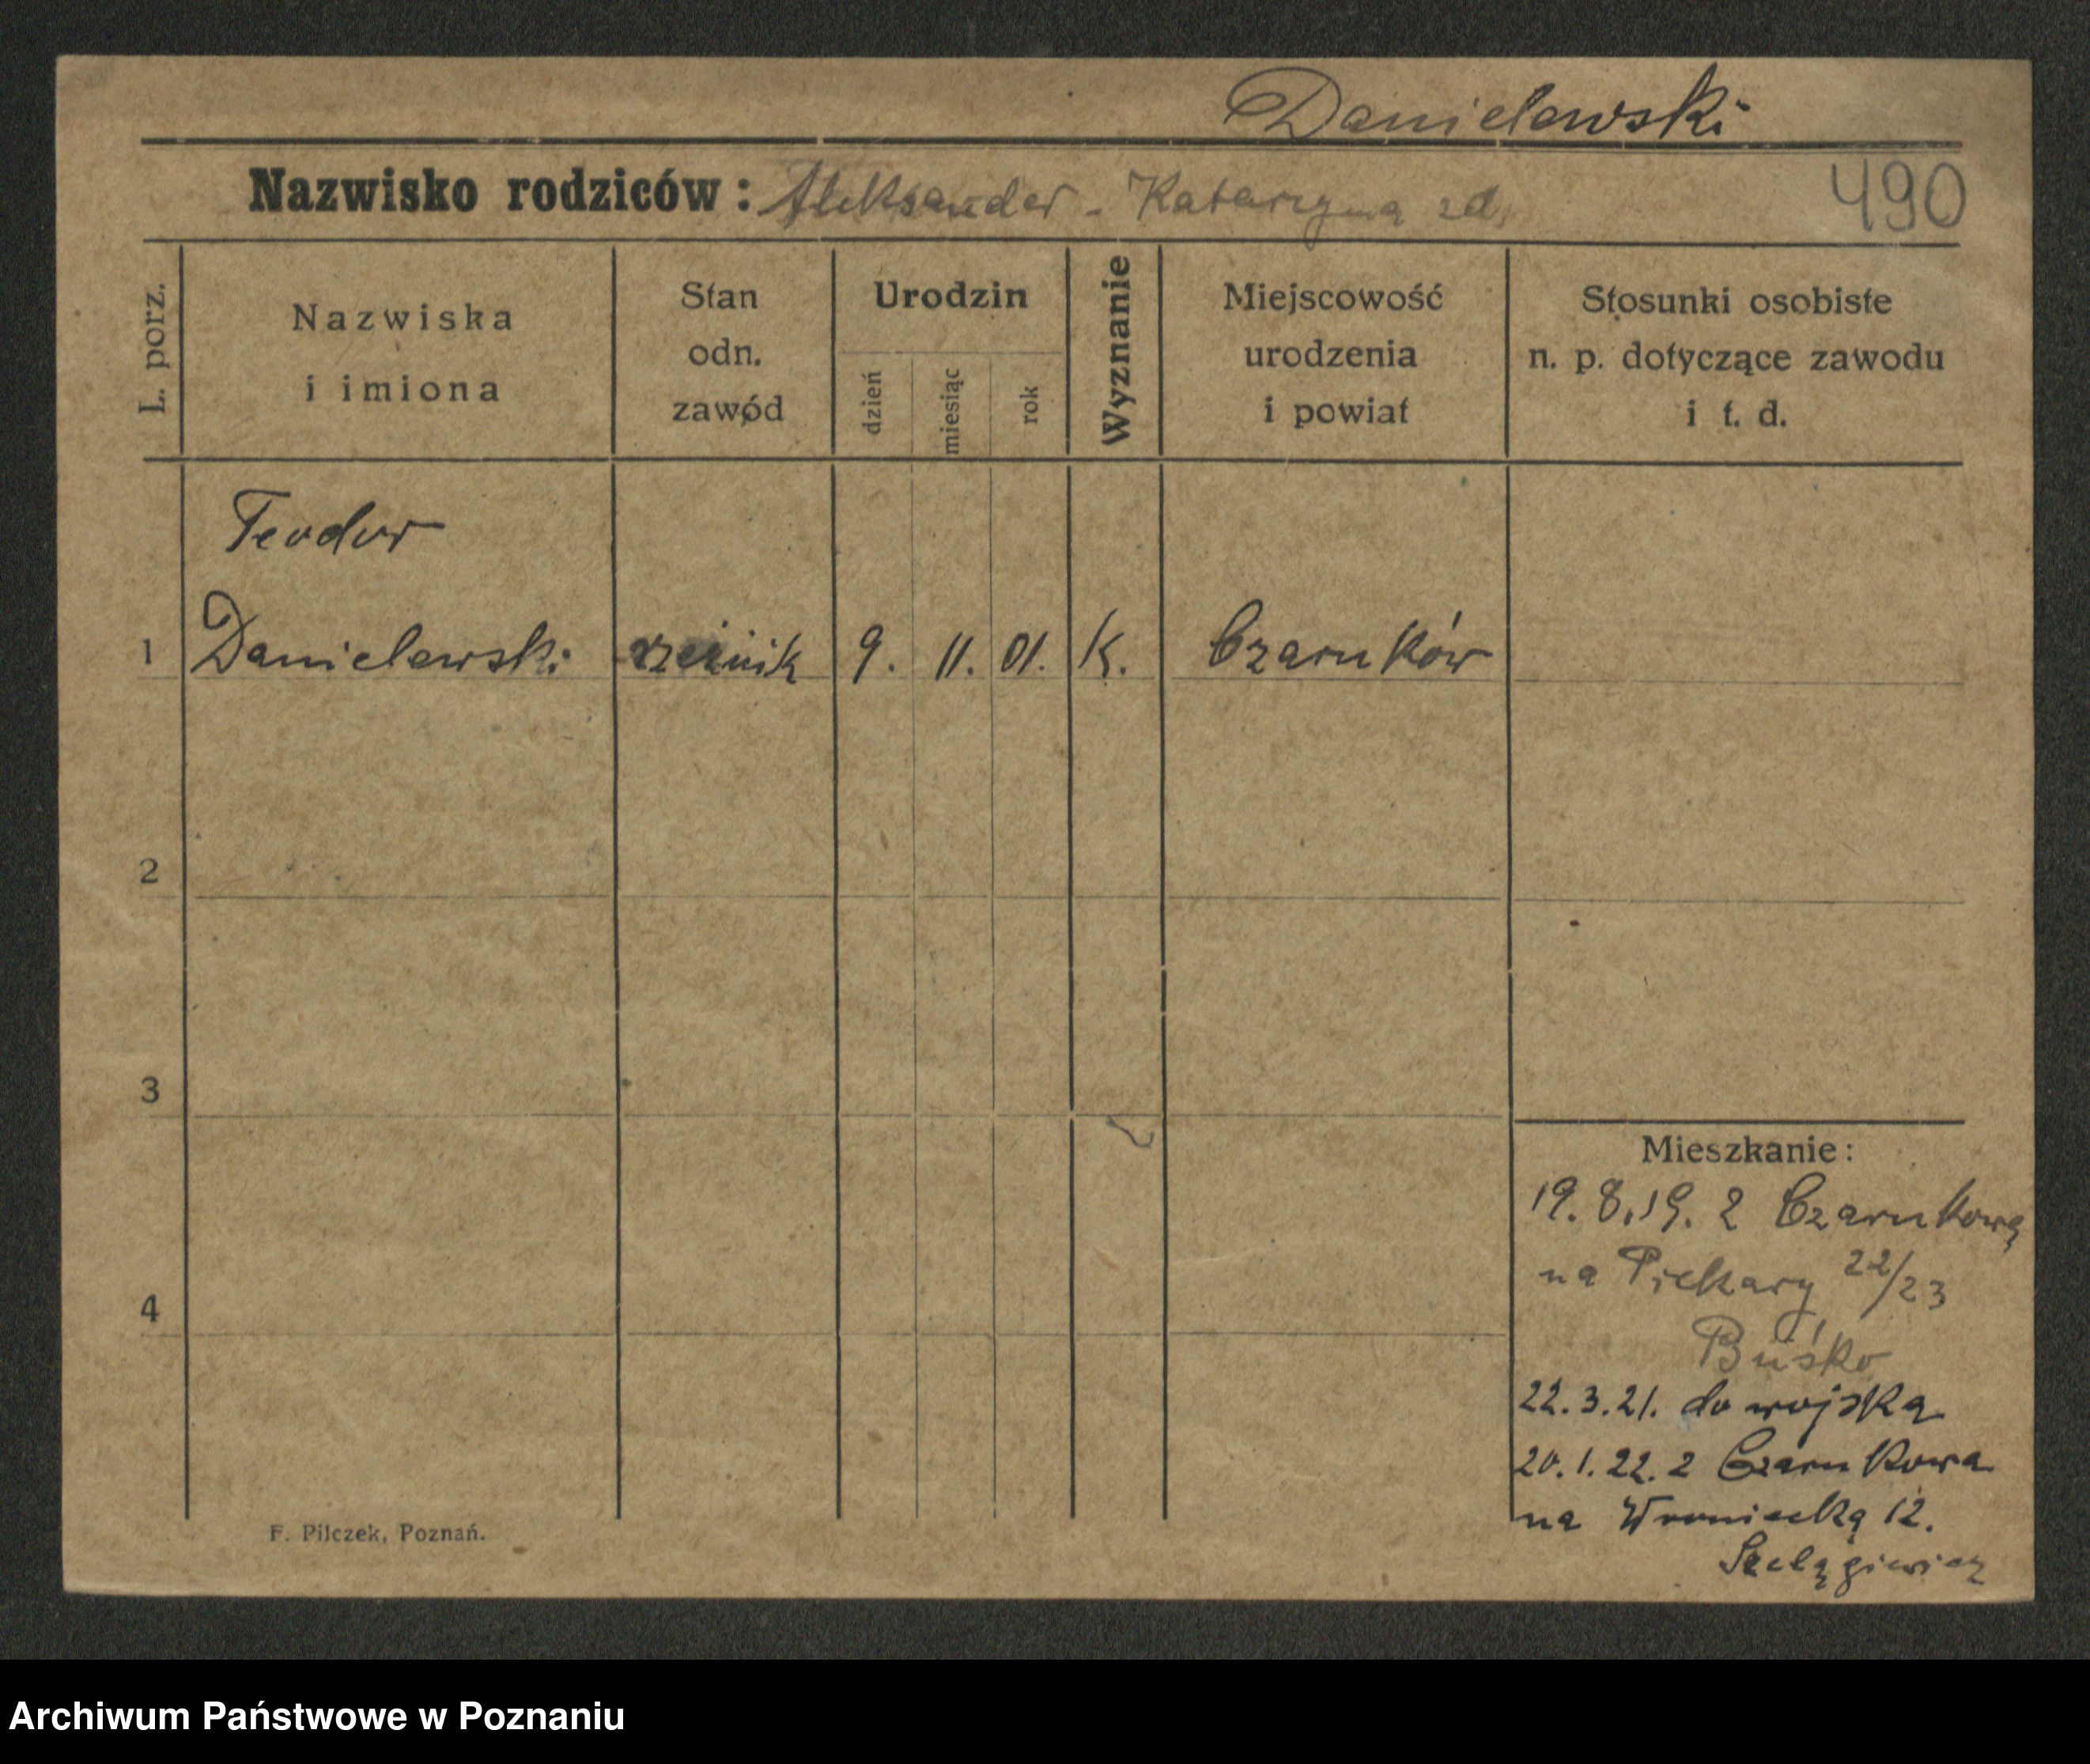 Danielewski
Nazwisko rodziców: Aleksander - Katarzyna zd.
490
L. porz.
Nazwiska
i imiona
Stan
odn.
zawód
Urodzin
dzień
miesiąc
rok
Wyznanie
Miejscowość
urodzenia
i powiat
Stosunki osobiste
n. p. dotyczące zawodu
i t. d.
Teodor
1 Danielewski rzeźnik 9. 11. 01. K. Czarnków
2
3
4
Mieszkanie:
19.8.19. z Czarnkowa
na Piekary 22/23
Buśko
22.3.21. do wojska
20.1.22. z Czarnkowa
na Wroniecką 12.
Szelągiewicz
F. Pilczek, Poznań.
Archiwum Państwowe w Poznaniu